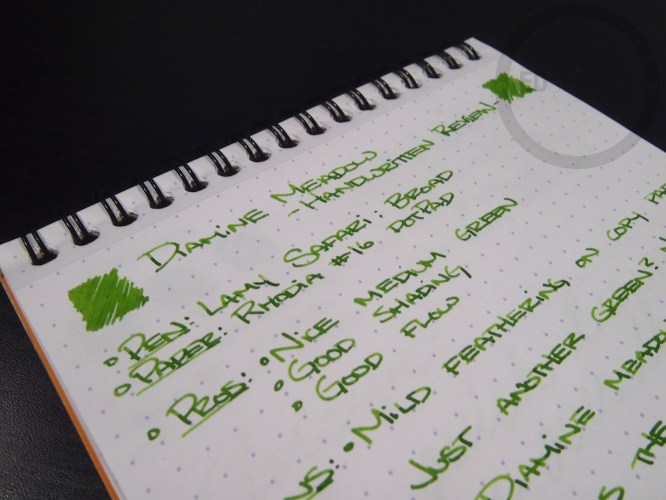 Diamine Meadow
- Handwritten Review -
Pen: Lamy Safari: Broad
Paper: Rhodia #16 DotPad
Pros: Nice medium green
Good shading
Good flow
Mild feathering on copy
Just another green?
Diamine Meadow
the